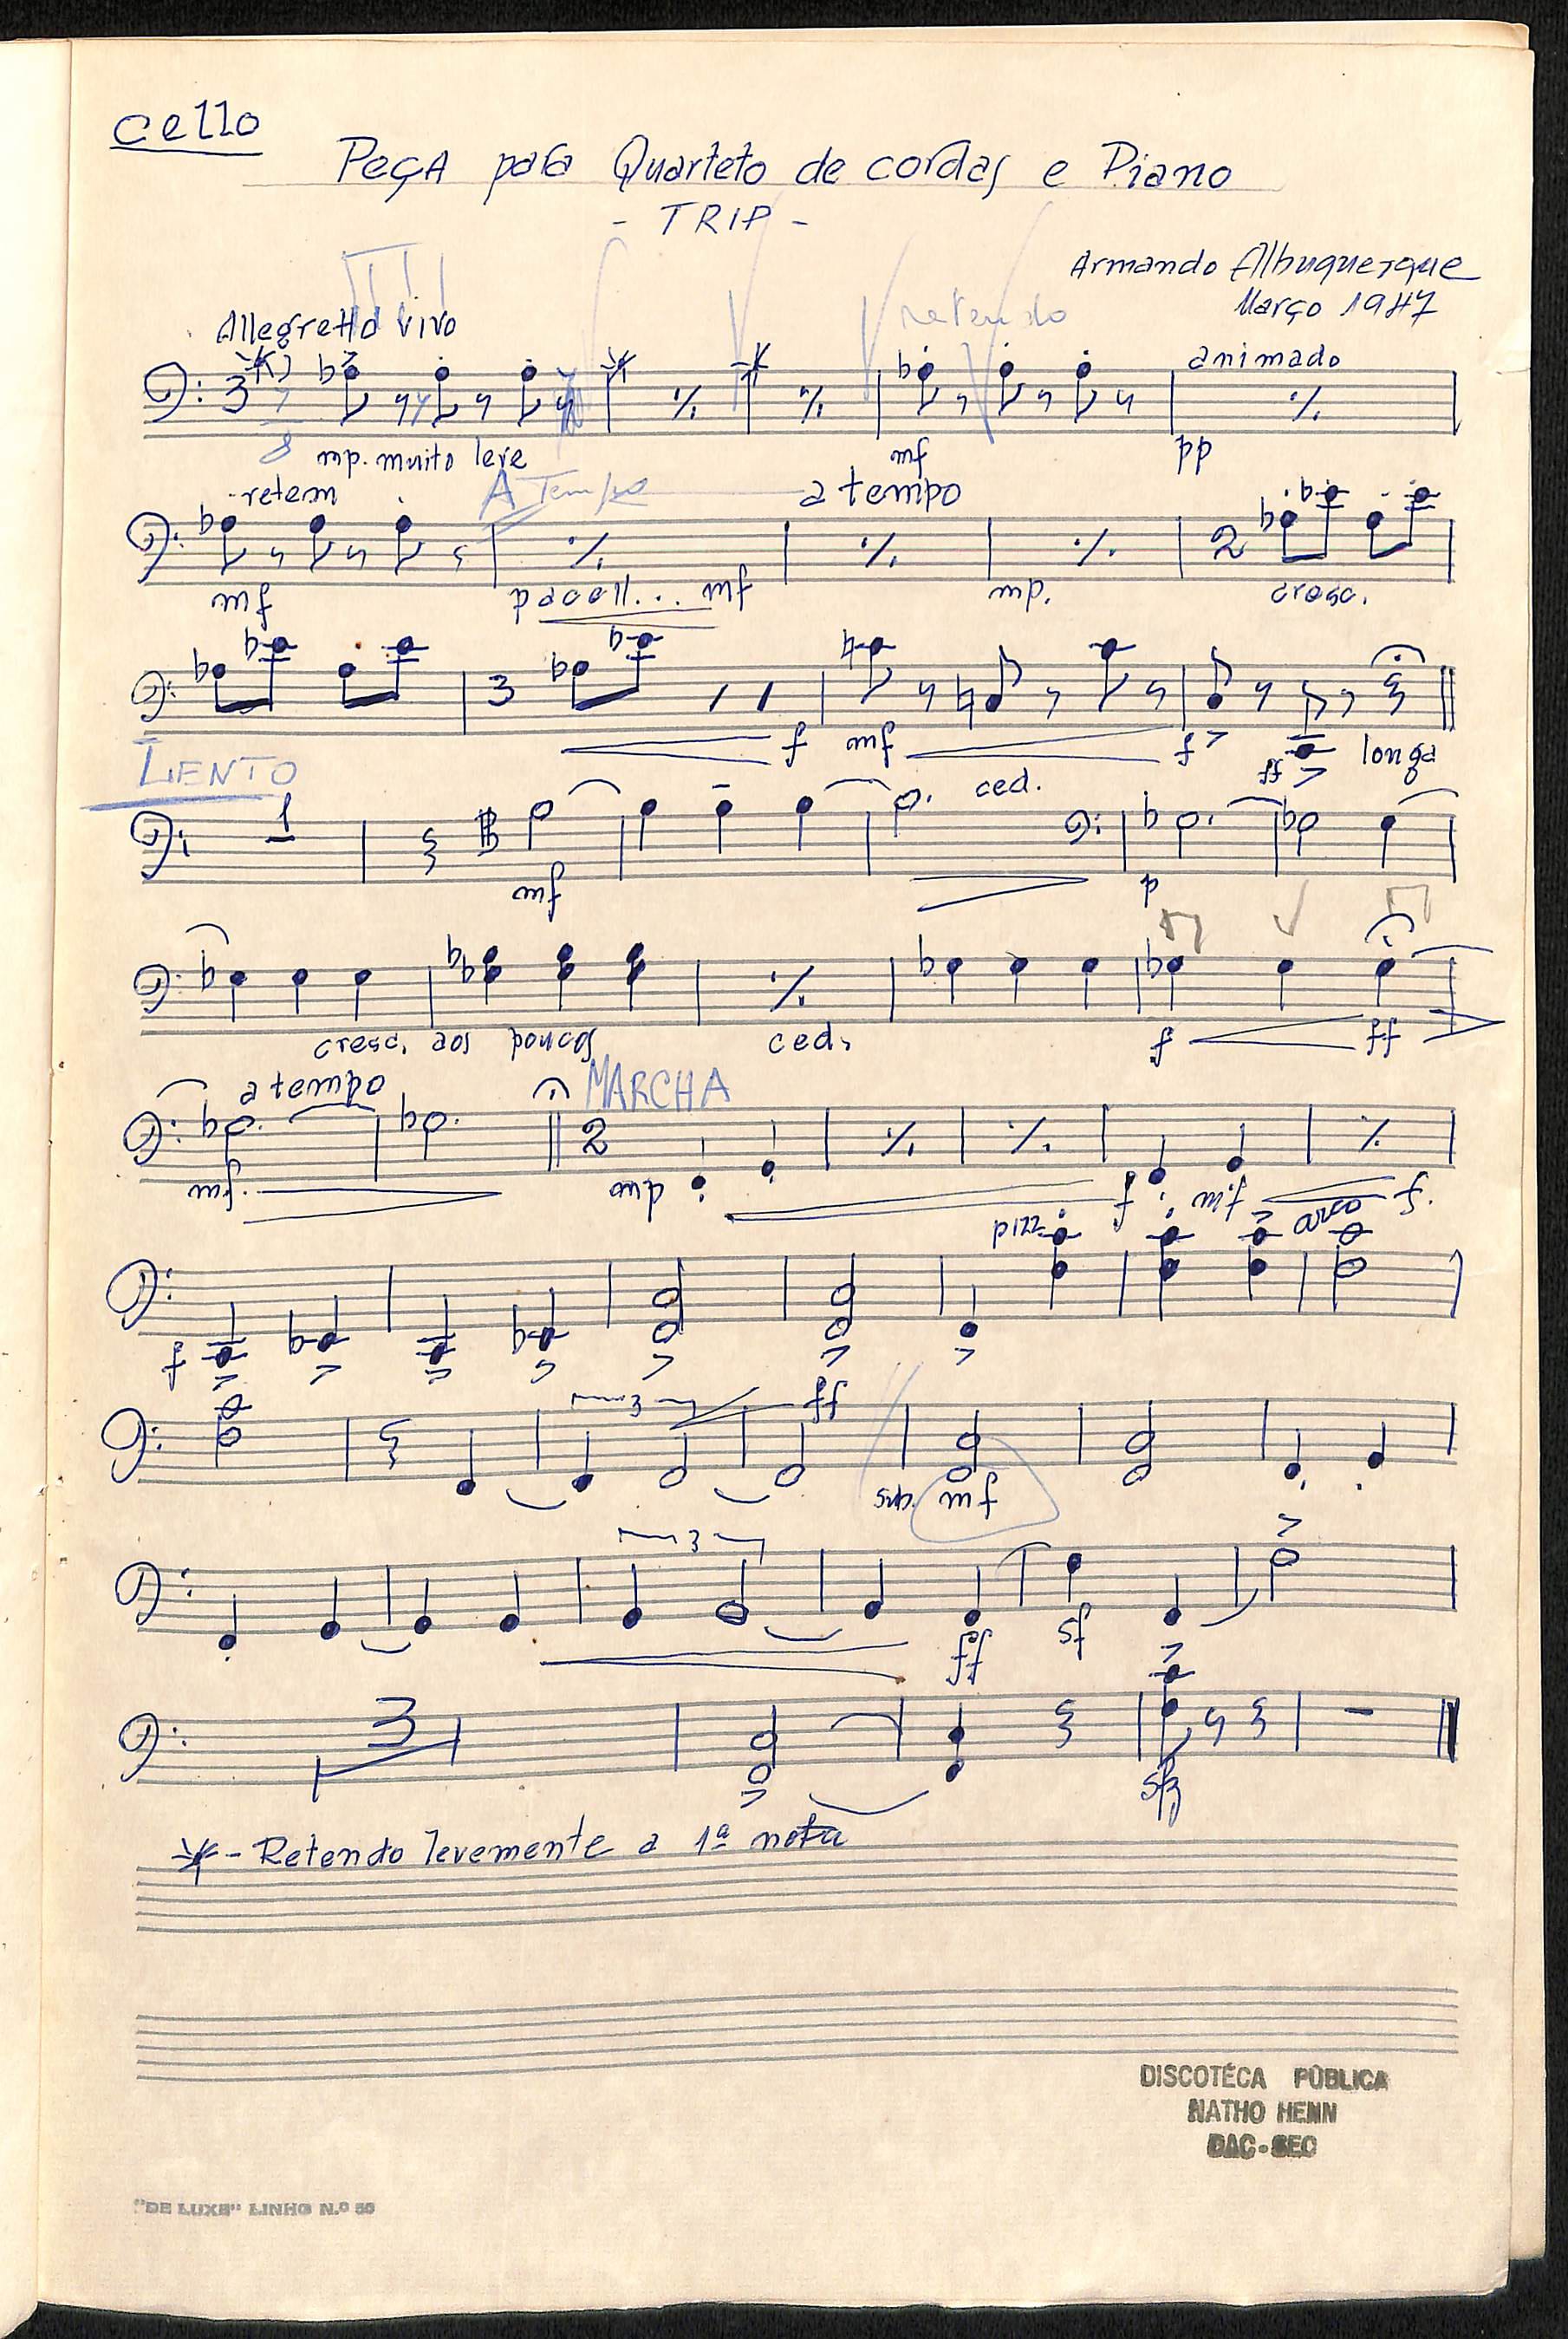 cello
PEÇA para Quarteto de cordas e Piano
- TRIP -
Armando Albuquerque
Março 1947
retendo
Allegretto vivo
animado
3
8
mp. muito leve
mf
pp
retem
A Tempo
a tempo
2
mf
p acell... mf
mp.
cresc.
3
f
mf
f
ff
longa
LENTO
1
ced.
mf
p
cresc. aos poucos
ced.
f
ff
a tempo
MARCHA
2
mf
mp
f
mf
f.
pizz
arco
f
3
ff
mf
3
ff
sf
3
sfz
* - Retendo levemente a 1ª nota
DISCOTÉCA PÚBLICA
NATHO HENN
DAC-SEC
"DE LUXE" LINHO N.º 50